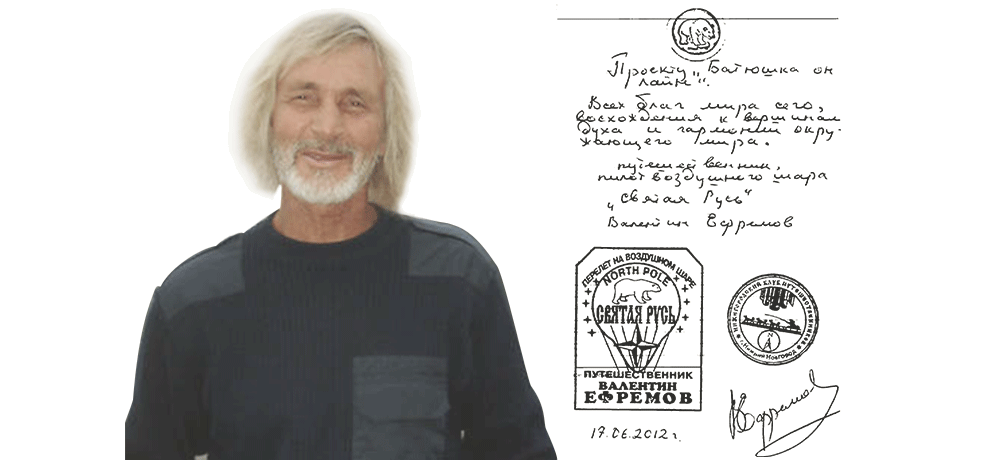 Проекту „Батюшка он
лайн".
Всех благ мира сего,
восхождения к вершинам
духа и гармонии окру-
жающего мира.
путешественник,
пилот воздушного шара
„Святая Русь"
Валентин Ефремов
ПЕРЕЛЕТ НА ВОЗДУШНОМ ШАРЕ
NORTH POLE
СВЯТАЯ РУСЬ
ПУТЕШЕСТВЕННИК
ВАЛЕНТИН
ЕФРЕМОВ
НИЖЕГОРОДСКИЙ КЛУБ ПУТЕШЕСТВЕННИКОВ
г. Нижний Новгород
19.06.2012 г.
Ефремов